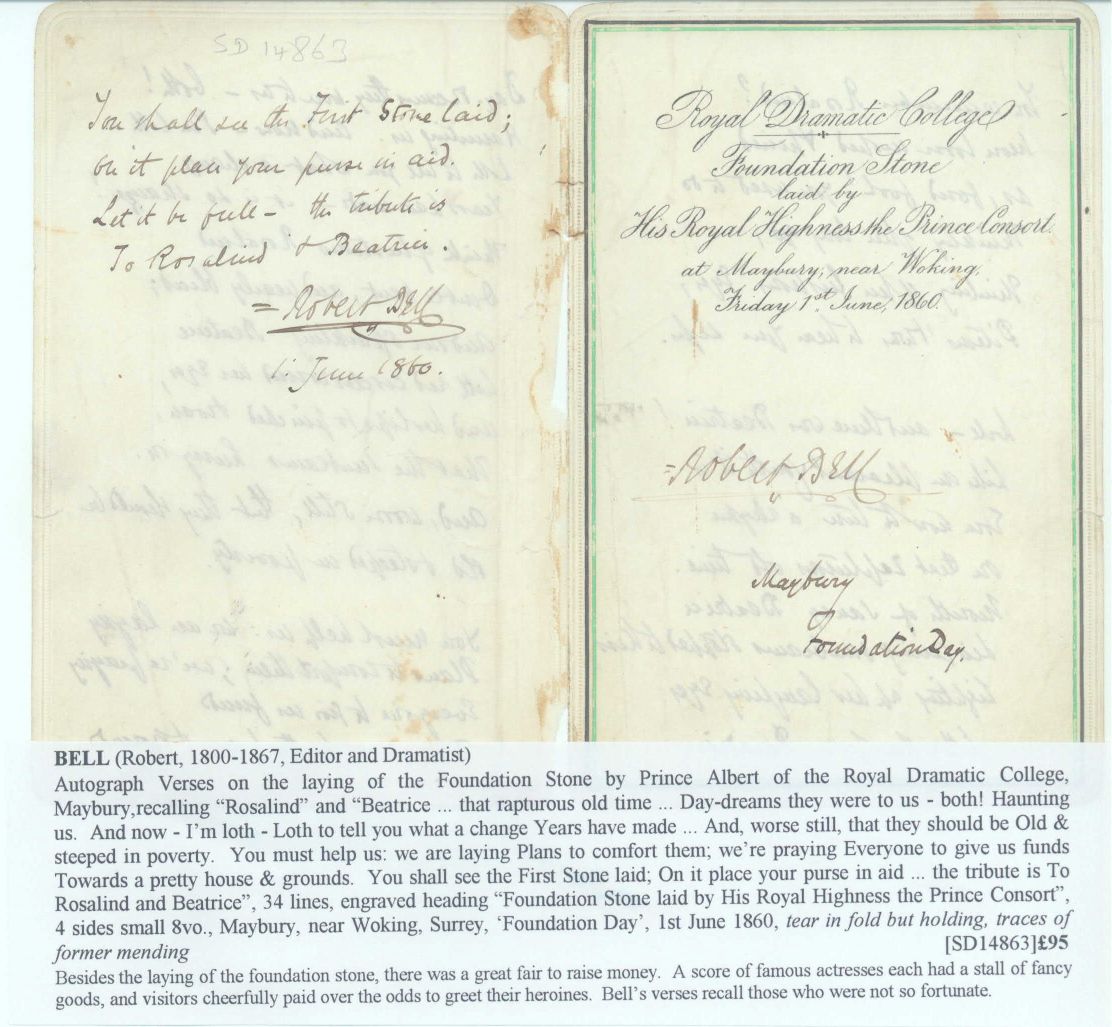 SD 14863
You shall see the First Stone laid;
On it place your purse in aid.
Let it be full – the tribute is
To Rosalind & Beatrice.
= Robert Bell
1. June 1860.
Royal Dramatic College
Foundation Stone
laid by
His Royal Highness the Prince Consort.
at Maybury, near Woking,
Friday 1st June, 1860.
=Robert Bell
Maybury
Foundation Day.
BELL (Robert, 1800-1867, Editor and Dramatist)
Autograph Verses on the laying of the Foundation Stone by Prince Albert of the Royal Dramatic College,
Maybury,recalling “Rosalind” and “Beatrice ... that rapturous old time ... Day-dreams they were to us - both! Haunting
us. And now - I’m loth - Loth to tell you what a change Years have made ... And, worse still, that they should be Old &
steeped in poverty. You must help us: we are laying Plans to comfort them; we’re praying Everyone to give us funds
Towards a pretty house & grounds. You shall see the First Stone laid; On it place your purse in aid ... the tribute is To
Rosalind and Beatrice”, 34 lines, engraved heading “Foundation Stone laid by His Royal Highness the Prince Consort”,
4 sides small 8vo., Maybury, near Woking, Surrey, ‘Foundation Day’, 1st June 1860, tear in fold but holding, traces of
former mending [SD14863]£95
Besides the laying of the foundation stone, there was a great fair to raise money. A score of famous actresses each had a stall of fancy
goods, and visitors cheerfully paid over the odds to greet their heroines. Bell’s verses recall those who were not so fortunate.